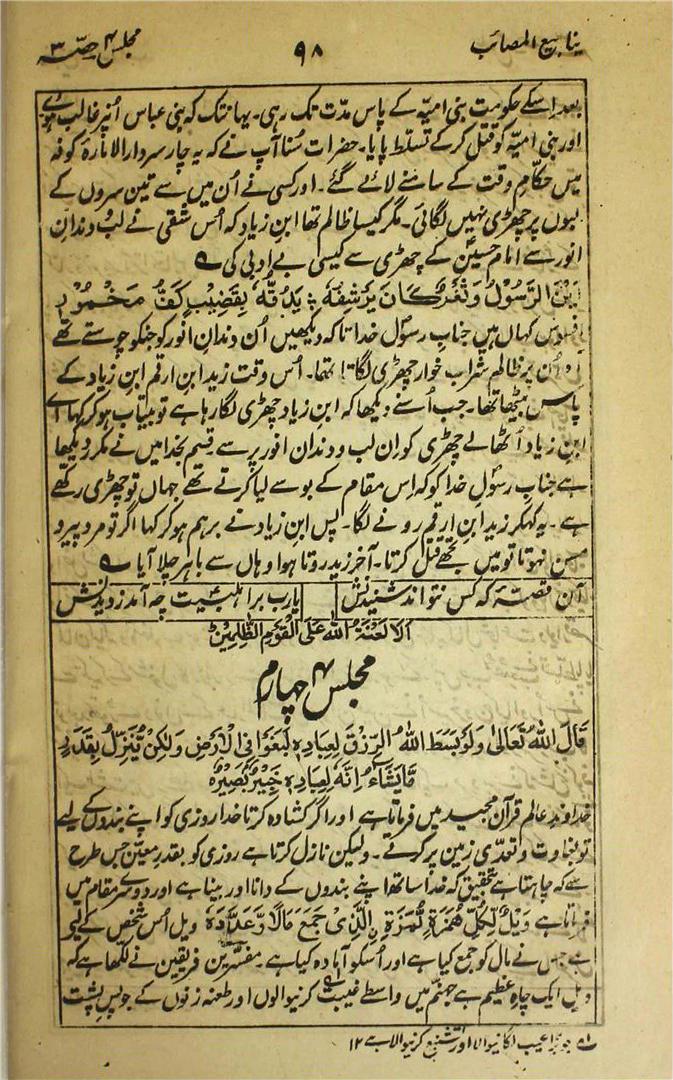 ینابیع المصائب
۹۸
مجلس ۴ حصّہ ۳
بعد اسکے حکومت بنی امیّہ کے پاس مدّت تک رہی۔ یہانتک کہ بنی عباس اُنپر غالب ہوے
اور بنی امیّہ کو قتل کرکے تسلط پایا۔ حضرات سُنا آپ نے کہ یہ چار سردار الامارۂ کوفہ
میں حکّامِ وقت کے سامنے لائے گئے۔ اور کسی نے اُن میں سے تین سروں کے
لبوں پر چھڑی نہیں لگائی۔ مگر کیسا ظالم تھا ابنِ زیاد کہ اُس شقی نے لب و دندانِ
انور سے امام حسینؑ کے چھڑی سے کیسی بے ادبی کی ؎
اَیْنَ الرَّسُوْلُ وَثَغْرٌ کَانَ یَرْشِفُہٗ ؛ یَدُقُّہٗ بِقَضِیْبٍ کَفُّ مَخْمُوْرٍ
افسوس کہاں ہیں جنابِ رسولؐ خدا تا کہ دیکھیں اُن دندانِ انور کو جنکو چوستے تھے
آہ اُن پر ظالم شراب خوار چھڑی لگاتا تھا۔ اُس وقت زید ابنِ ارقم ابنِ زیاد کے
پاس بیٹھا تھا۔ جب اُسنے دیکھا کہ ابنِ زیاد چھڑی لگا رہا ہے تو بیتاب ہو کر کہا اے
ابنِ زیاد اُٹھا لے چھڑی کو اِن لب و دندان انور پر سے قسم بخدا میں نے مکرر دیکھا
ہے جنابِ رسولؐ خدا کو کہ اِس مقام کے بوسے لیا کرتے تھے جہاں تو چھڑی رکھے
ہے۔ یہ کہکر زید ابنِ ارقم رونے لگا۔ پس ابنِ زیاد نے برہم ہو کر کہا اگر تو مرد پیر و
مسن نہوتا تو میں تجھے قتل کرتا۔ آخر زید روتا ہوا وہاں سے باہر چلا آیا ؎
آن قصّۂ کہ کس نتواند شنیدنش
یارب بر اہلبیت چہ آمد ز دیدنش
اَلَا لَعْنَۃُ اللہِ عَلَی الْقَوْمِ الظّٰلِمِیْنَ
مجلس ۴ چہارم
قَالَ اللہُ تَعَالیٰ وَلَوْ بَسَطَ اللہُ الرِّزْقَ لِعِبَادِہٖ لَبَغَوْا فِی الْاَرْضِ وَلٰکِنْ یُّنَزِّلُ بِقَدَرٍ
مَّا یَشَآءُ اِنَّہٗ لِعِبَادِہٖ خَبِیْرٌ بَصِیْرٌ
خداوندِ عالم قرآن مجید میں فرماتا ہے اور اگر کشادہ کرتا خدا روزی کو اپنے بندوں کے لیے
تو بغاوت و تعدّی زمین پر کرتے۔ ولیکن نازل کرتا ہے روزی کو بقدرِ معیّن جس طرح
سے کہ چاہتا ہے تحقیق کہ خدا ساتھ اپنے بندوں کے دانا اور بینا ہے اور دوسرے مقام میں
فرماتا ہے وَیْلٌ لِّکُلِّ ھُمَزَۃٍ لُّمَزَۃِ نِ الَّذِیْ جَمَعَ مَالًا وَّعَدَّدَہٗ ویل اُس شخص کے لیے
ہے جس نے مال کو جمع کیا ہے اور اُسکو آمادہ کیا ہے۔ مفسّرین فریقین نے لکھا ہے کہ
ویل ایک چاہ عظیم ہے جہنّم میں واسطے غیبت کرنیوالوں اور طعنہ زنوں کے جو پسِ پشت
؎ جو بڑا عیب لگانیوالا اور تشنیع کرنیوالا ہے ۱۲